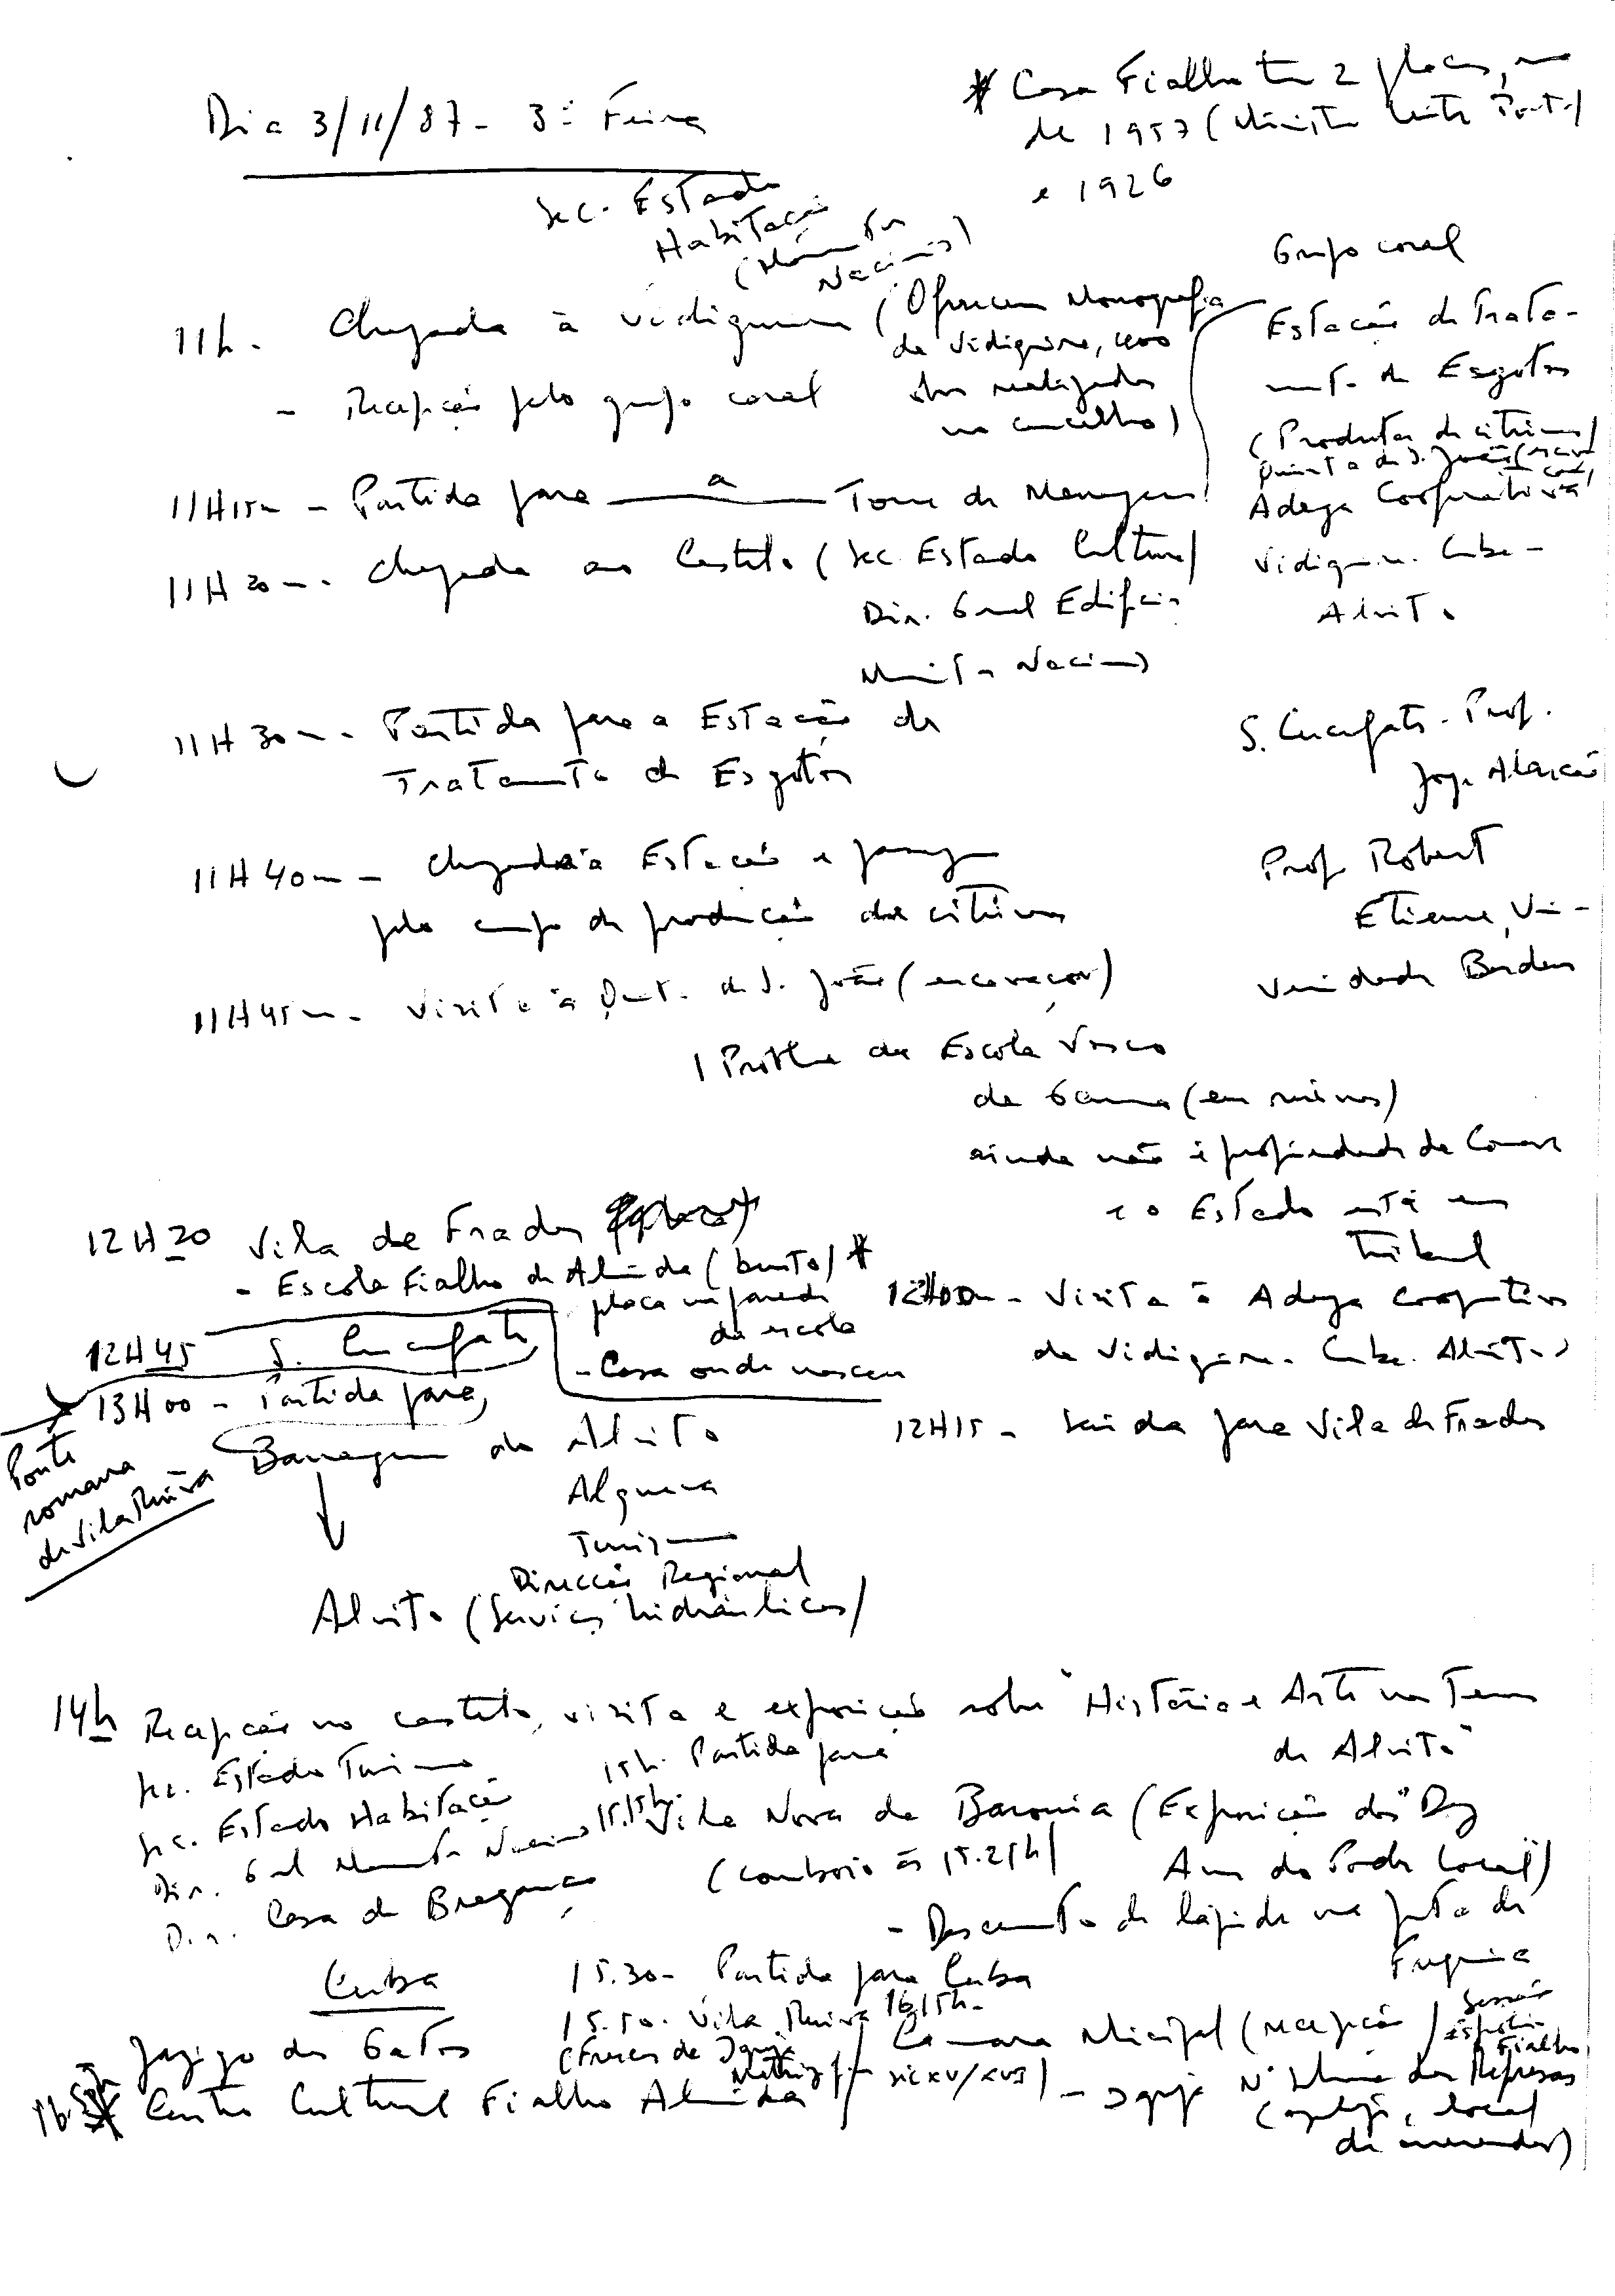 Dia 3/11/87 - 3ª Feira
* Casa Fialho tem 2 placas, uma
de 1957 (Ministro Leite Pinto)
e 1926
Sec. Estado
Habitação
(Monumentos
Nacionais)
11h. Chegada à Vidigueira (Oferecem Monografia
da Vidigueira, livro
obras realizadas
no concelho)
- Recepção pelo grupo coral
11H15m - Partida para a Torre de Menagem
11H20m - Chegada ao Castelo (Sec Estado Cultura)
Dir. Geral Edifícios
Monumentos Nacionais
11H30m - Partida para a Estação de
Tratamento de Esgotos
11H40m - Chegada à Estação e passagem
pelo campo de produção dos citrinos
11H45m - Visita à Quinta de S. João (escavações)
Grupo coral
Estação de Trata-
mento de Esgotos
(Produtor de citrinos)
Quinta de S. João
Adega Cooperativa
Vidigueira. Cuba -
Alvito
S. Cucufate - Prof.
Jorge Alarcão
Prof. Robert
Etienne, Uni-
versidade Bordeus
da Escola Vasco
da Gama (em ruínas)
ainda não é propriedade da Camara
e o Estado está em
tribunal
12H00m - Visita à Adega Cooperativa
da Vidigueira. Cuba. Alvito
12H15 - Saída para Vila de Frades
12H20 Vila de Frades
- Escola Fialho de Almeida (busto) *
placa na parede
da escola
- Casa onde nasceu
12H45 S. Cucufate
13H00 - Partida para
Barragem do Alvito
Ponte
romana
de Vila Ruiva
Alqueva
Turismo
Direcção Regional
Alvito (Serviços hidráulicos)
14h Recepção no castelo, visita e exposição sobre "História e Arte na Terra
de Alvito"
Sec. Estado Turismo
Sec. Estado Habitação
Dir. Geral Monumentos Nacionais
Dir. Casa de Bragança
15h. Partida para
15.15h. Vila Nova da Baronia (Exposição dos "Dez
Anos do Poder Local")
(comboio às 15.25h)
- Descerramento de lápide na Junta de
Freguesia
15.30 - Partida para Cuba
15.50. Vila Ruiva
(Frescos da Igreja
Matriz séc XV/XVI)
Cuba
16.15h - Camara Municipal (recepção)
Sessão
espólio
Fialho
- Igreja Nª Senhora das Represas
Jazigo dos Gatos
Centro Cultural Fialho Almeida